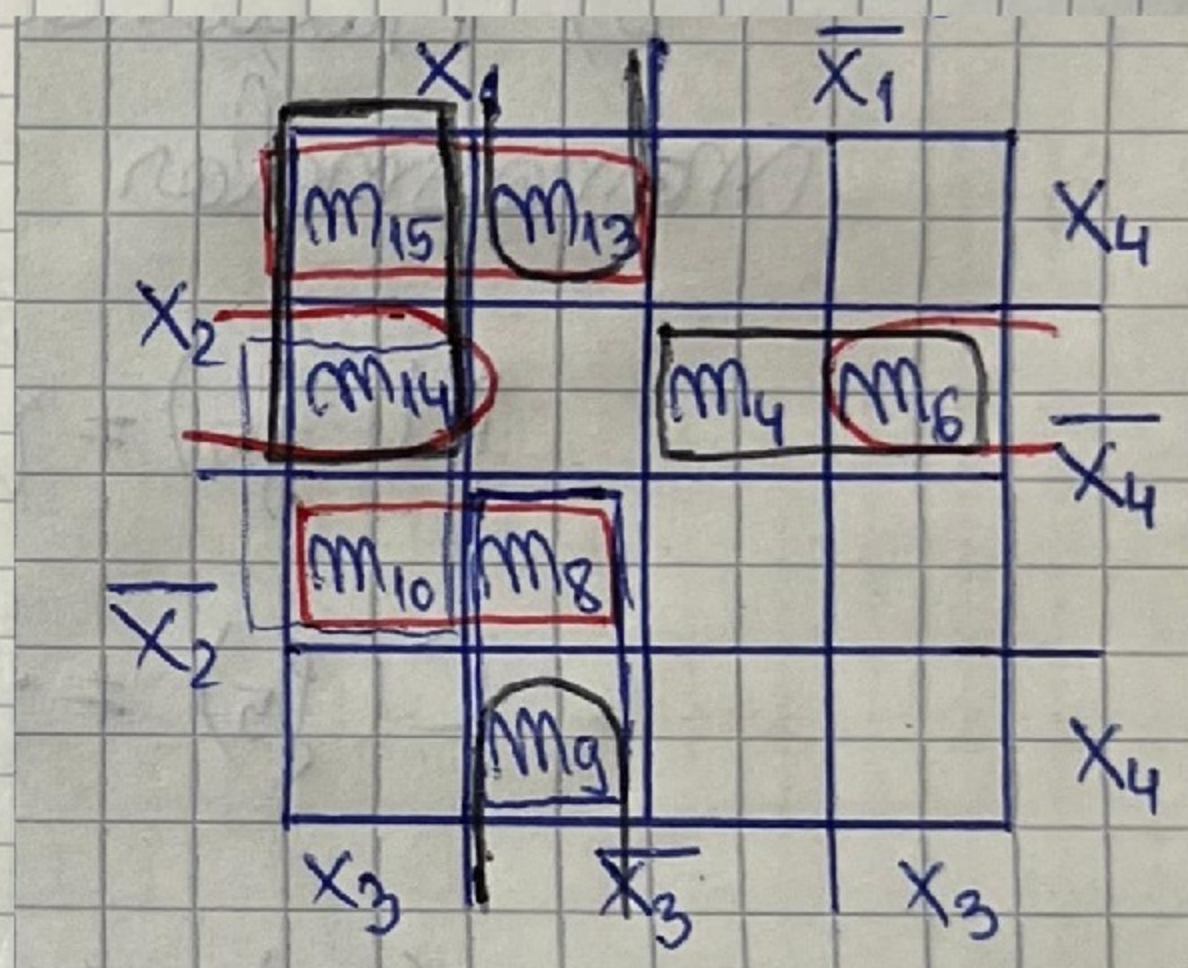 X₁ X̅₁
m₁₅ m₁₃ X₄
X₂
m₁₄ m₄ m₆ X̅₄
m₁₀ m₈
X̅₂
m₉ X₄
X₃ X̅₃ X₃